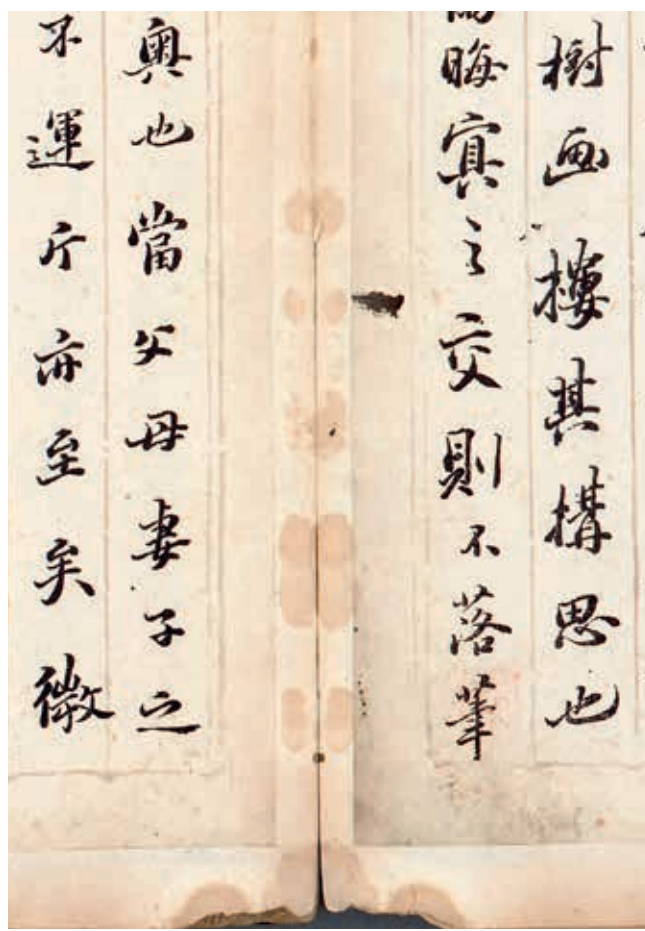 樹画樓其構思也
晦㝠之交則不落筆
奥也當父母妻子之
不運斤亦至矣徽